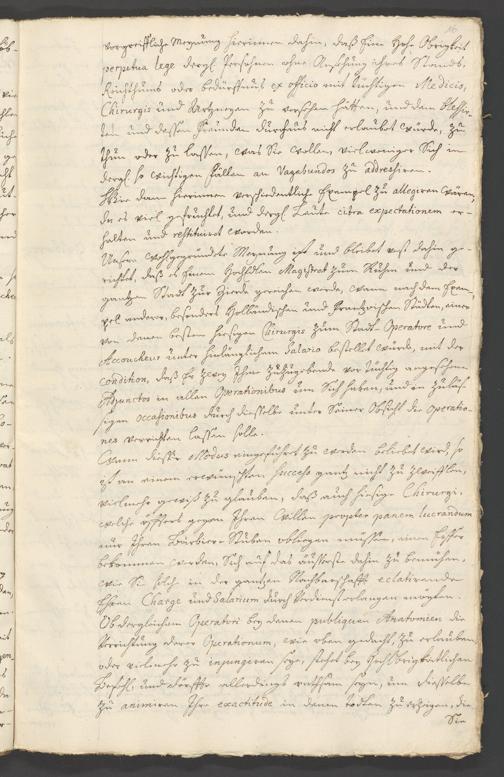 vorgreiffliche Meynung hierinnen dahin, daß Eine Hohe Obrigkeit
perpetua lege dergl. Persohnen ohne Ansehung ihres Stands,
Reichthums oder bedürffnus ex officio mit tüchtigen Medicis,
Chirurgis und Artzneyen zu versehen hätten, und dem
und dessen Freunden durchaus nicht erlaubet würde, zu
thun oder zu lassen, was Sie wollen, vielweniger Sich in
dergl. so wichtigen fällen an Vagabundos zu addressiren.
dann hierinnen verschiedentliche Exempel zu allegiren wären,
da es viel gefruchtet, und dergl. Leute citra expectationem er-
halten und restituiret worden.
Unsere wohlgegründte Meynung ist und bleibet vest dahin ge-
richtet, daß es Einem HochEdlen Magistrat zum Ruhm und der
gantzen Stadt zur Zierde gereichen werde, wann nach dem Exem-
pel anderer, besonders Holländischen und Frantzösischen Städten, einer
von denen besten hiesigen Chirurgis zum Stadt Operatore und
Accoucheur unter hinlänglichem Salario bestellt würde, mit der
condition, daß Er zwey Ihme zuzugebende vor tüchtig angesehene
Adjunctos in allen Operationibus um Sich haben, und in zuläs-
sigen occasionibus durch dieselbe unter Seiner Obsicht die Operatio-
nes verrichten lassen solle.
Wann dieser Modus eingeführt zu werden beliebet wird, so
ist an einem erwünschten Success gantz nicht zu zweifflen,
vielmehr gewiß zu glauben, daß auch hiesige Chirurgi,
welche öffters gegen Ihren Willen propter panem lucrandum
nur Ihren Barbier-Stuben obliegen müssen, einen Eyffer
bekommen werden, Sich auf das äusserste dahin zu bemühen,
wie Sie solch in der gantzen Nachbarschafft eclatirende
Ehren Charge und Salarium durch Verdienst erlangen mögten.
Ob dergleichen Operatori bey denen publiquen Anatomien die
Verrichtung derer Operationum, wie oben gedacht, zu erlauben,
oder vielmehr zu injungiren seye, stehet bey HochObrigkeitlichen
Befehl, und dürffte allerdings rathsam seyn, um dieselbe
zu animiren Ihre exactitude in denen todten zu zeigen, die
Sie